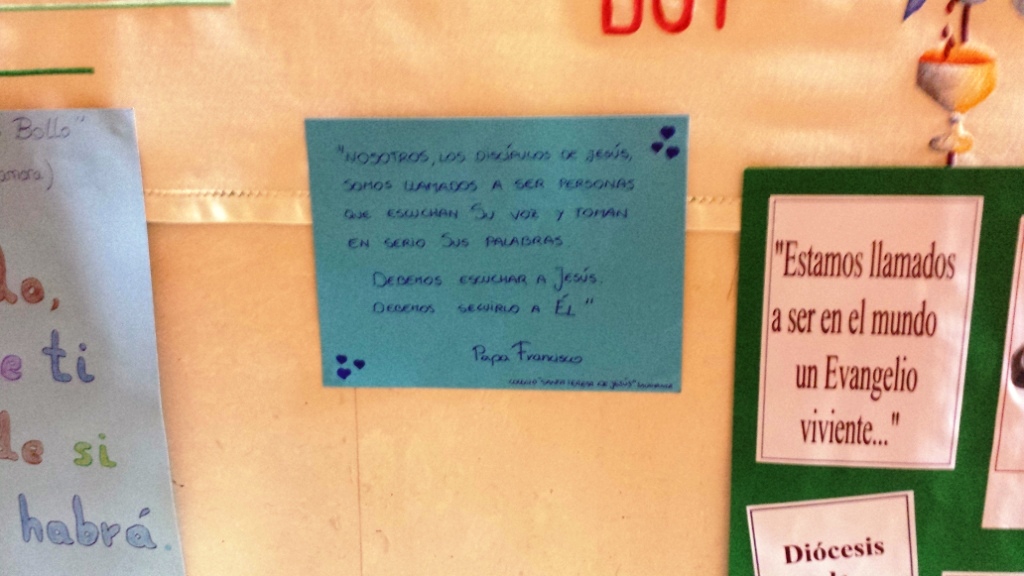 DOY
Bollo"
"NOSOTROS, LOS DISCÍPULOS DE JESÚS,
SOMOS LLAMADOS A SER PERSONAS
QUE ESCUCHAN SU VOZ Y TOMAN
EN SERIO SUS PALABRAS.
DEBEMOS ESCUCHAR A JESÚS.
DEBEMOS SEGUIRLO A ÉL"
Papa Francisco
COLEGIO "SANTA TERESA DE JESÚS"
ti
si
habrá.
"Estamos llamados
a ser en el mundo
un Evangelio
viviente..."
Diócesis